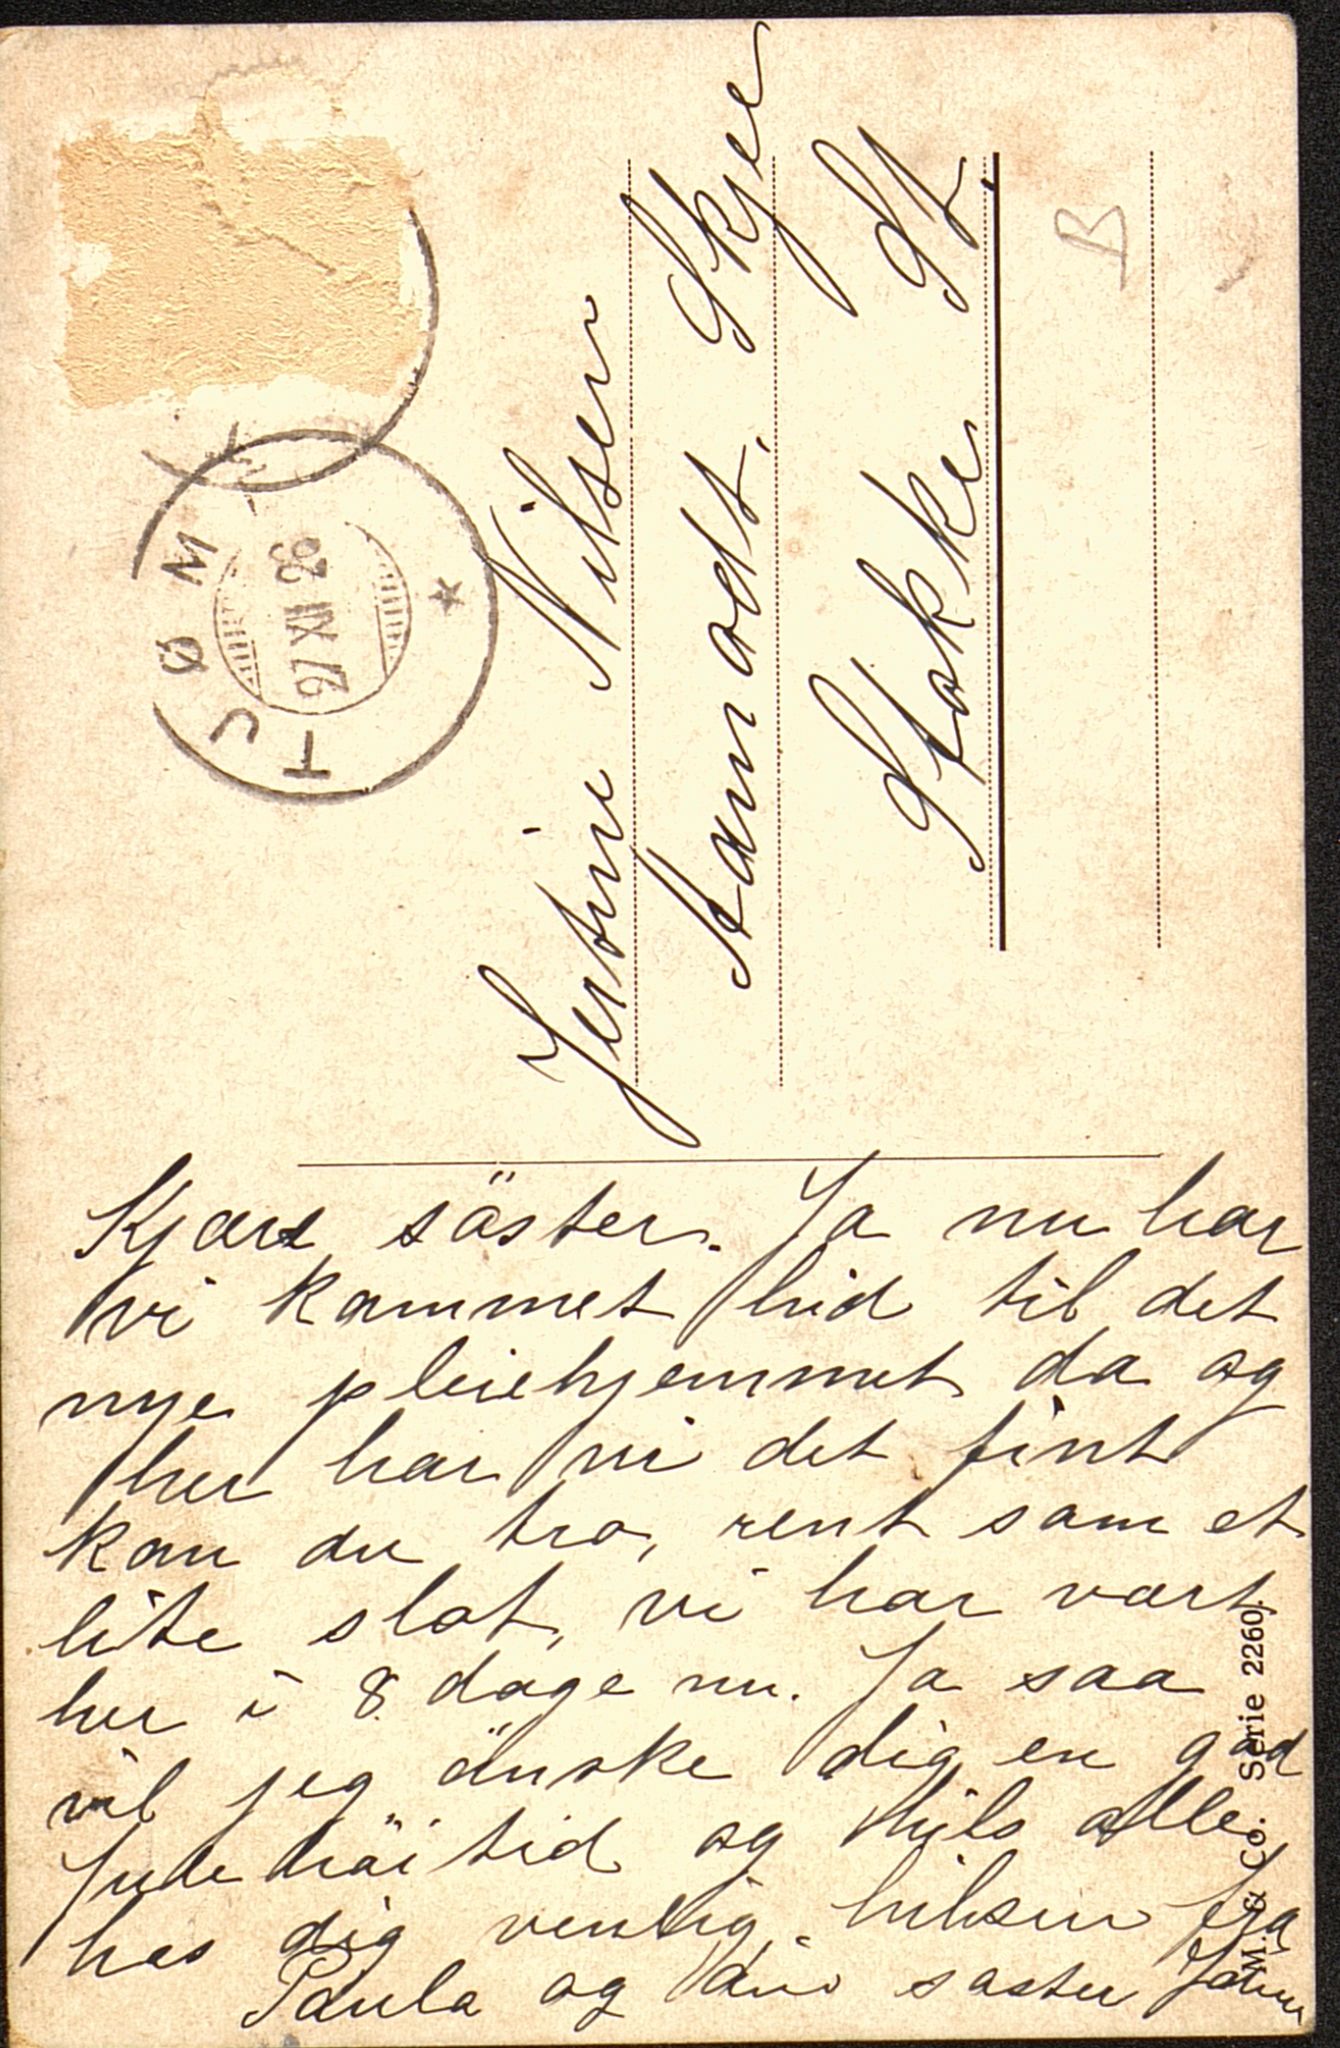 Kjære söster. Ja nu har
vi kommet hid til det
nye pleiehjemmet da og
her har vi det fint
kan du tro, rent som et
lite slot, vi har vært
her i 8 dage nu. Ja saa
vil jeg önske dig en god
Julehöitid og hils alle
hos dig venlig hilsen fra
Paula og din söster
Jertine Nilsen
Skjee
Stokke St.
TJØM
27 XII 26
B
M. & Co. Serie 2260.